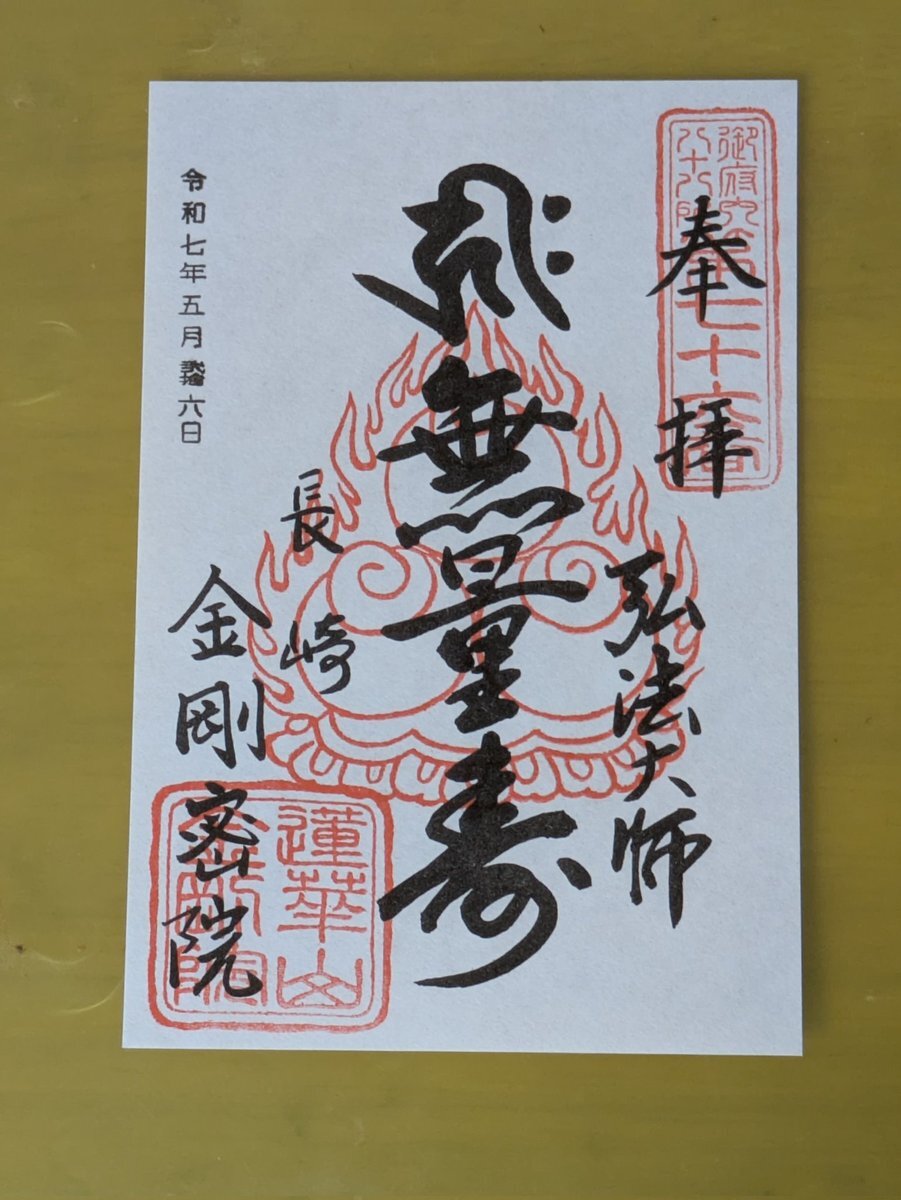 奉拝
御府内
八十八所
第七十六番
弘法大師
無量寿
長崎
金剛密院
蓮華山
金剛院
令和七年五月弐拾六日